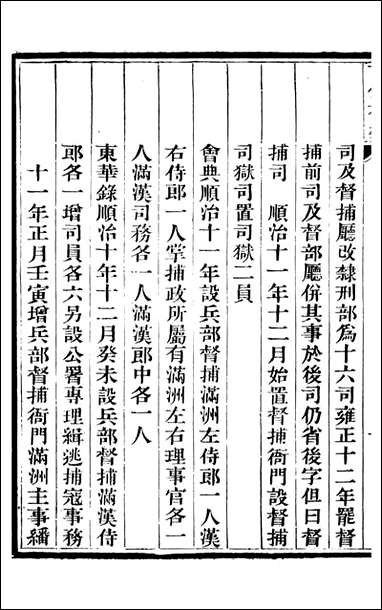 司及督捕廳改隸刑部為十六司雍正十二年罷督
捕前司及督部廳併其事於後司仍省後字但曰督
捕司　順治十一年十二月始置督捕衙門設督捕
司獄司置司獄二員
會典順治十一年設兵部督捕滿洲左侍郎一人漢
右侍郎一人掌捕政所屬有滿洲左右理事官各一
人滿漢司務各一人滿漢郎中各一人
東華錄順治十年十二月癸未設兵部督捕滿漢侍
郎各一增司員各六另設公署專理緝逃捕寇事務
十一年正月壬寅增兵部督捕衙門滿洲主事繙